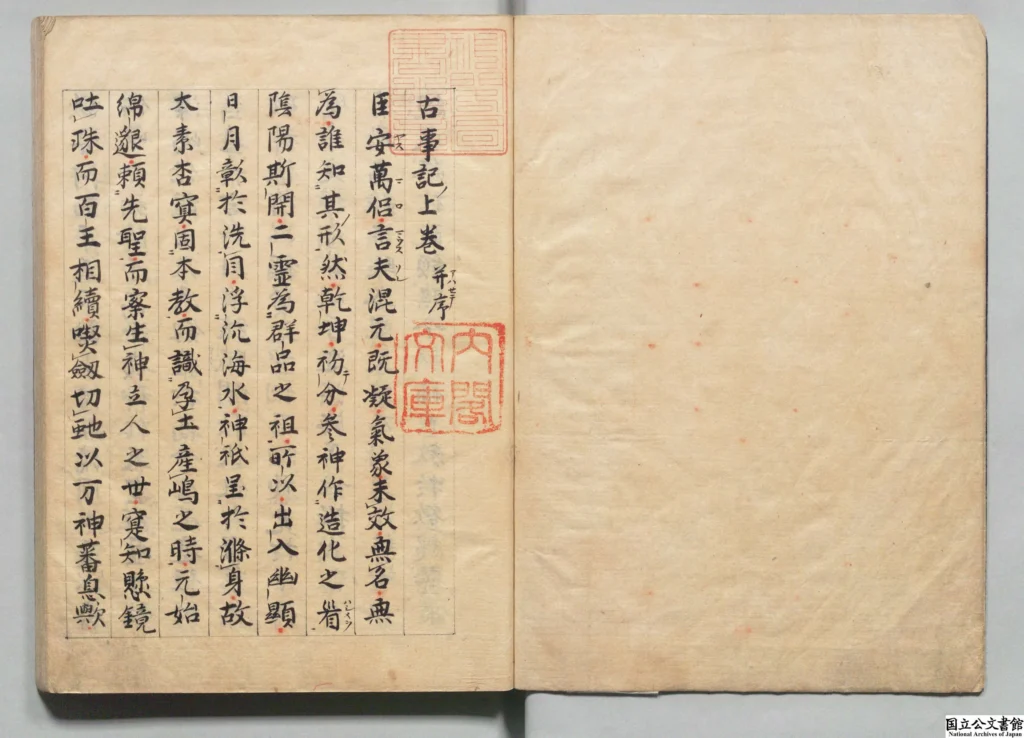 古事記上巻 并序
臣安萬侶言夫混元既凝氣象未效無名無
為誰知其形然乾坤初分參神作造化之首
陰陽斯開二靈為群品之祖所以出入幽顯
日月彰於洗目浮沉海水神祇呈於滌身故
太素杳冥固本教而識孕土產嶋之時元始
綿邈頼先聖而察生神立人之世寔知懸鏡
吐珠而百王相續喫釼切虵以万神蕃息歟
内閣
文庫
国立公文書館
National Archives of Japan